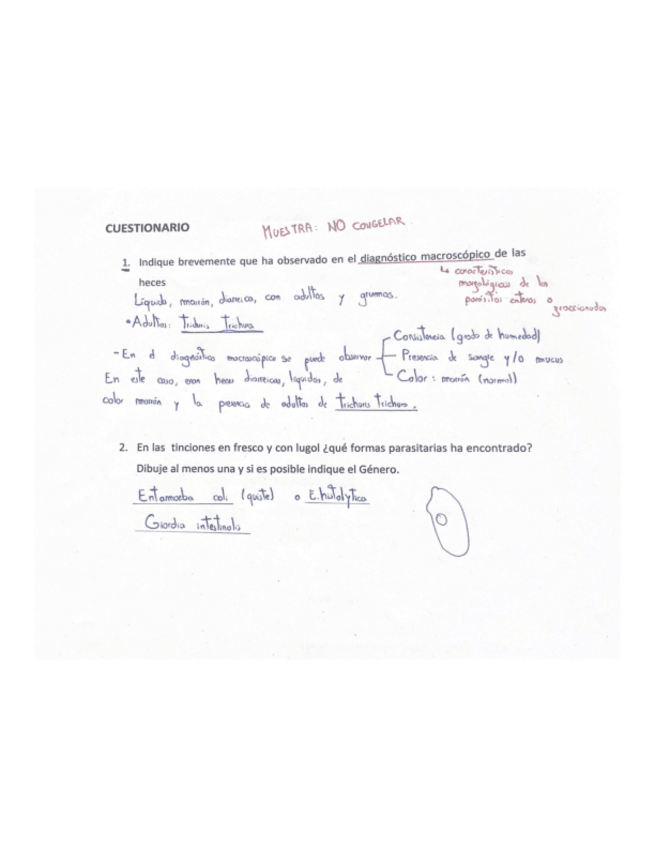 CUESTIONARIO
MUESTRA: NO CONGELAR.
1. Indique brevemente que ha observado en el diagnóstico macroscópico de las
heces
↳ características
morfológicas de los
parásitos enteros o
fraccionados
Líquida, marrón, diarreica, con adultos y grumos.
• Adultos: Trichuris Trichura
- En el diagnóstico macroscópico se puede observar
Consistencia (grado de humedad)
Presencia de sangre y/o mucus
Color: marrón (normal)
En este caso, eran heces diarreicas, líquidas, de
color marrón y la presencia de adultos de Trichuris Trichura.
2. En las tinciones en fresco y con lugol ¿qué formas parasitarias ha encontrado?
Dibuje al menos una y si es posible indique el Género.
Entamoeba coli (quiste) o E. histolytica
Giardia intestinalis